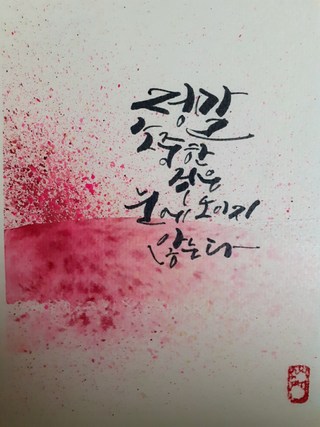 정말
소중한
것은
눈에 보이지
않는다